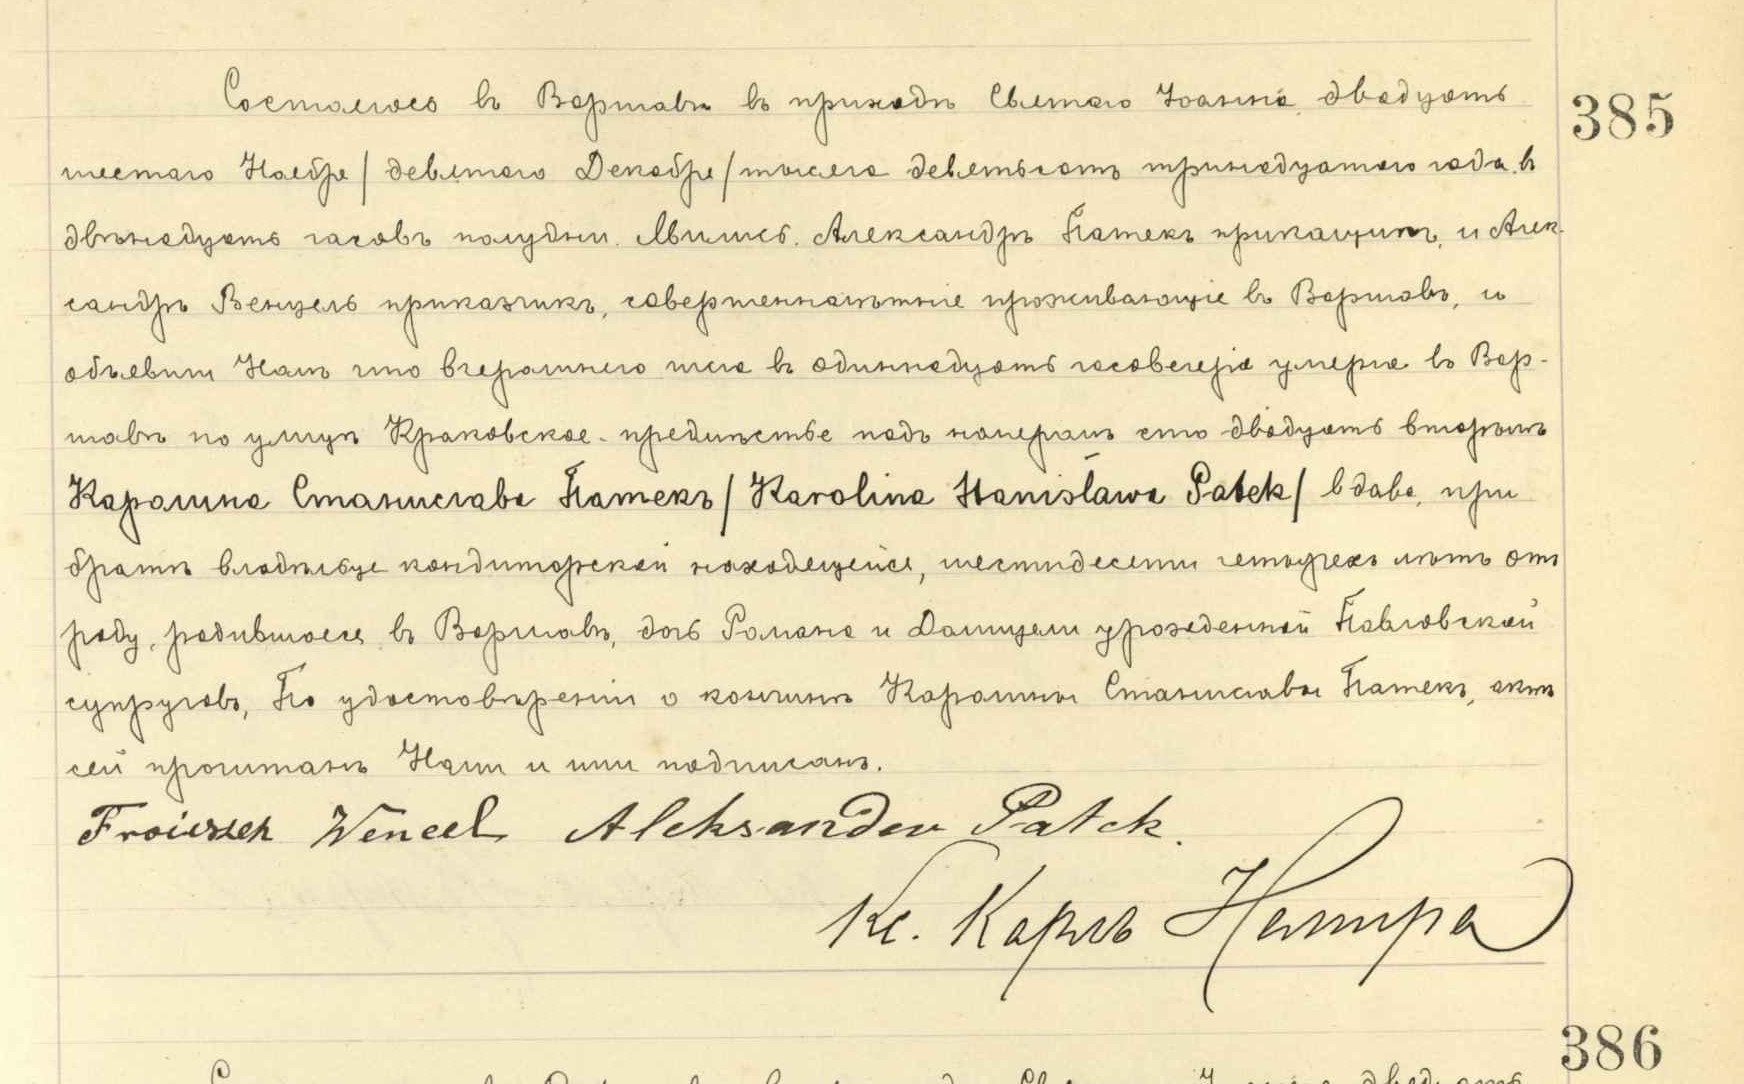 Состоялось въ Варшавѣ въ приходѣ Святаго Іоанна двадцать
385
шестаго Ноября / девятаго Декабря / тысяча девятьсотъ тринадцатаго года въ
двѣнадцать часовъ полудни. Явились Александръ Патекъ прикащикъ, и Алек-
сандръ Венцель приказчикъ, совершеннолѣтніе проживающіе въ Варшавѣ, и
объявили Намъ что вчерашняго числа въ одиннадцать часоввечера умерла въ Вар-
шавѣ по улицѣ Краковское-предмѣстье подъ номеромъ сто двадцать вторымъ
Каролина Станислава Патекъ / Karolina Stanisława Patek / вдова, при
братѣ владѣльце кондиторской находящейся, шестидесяти четырехъ лѣтъ отъ
роду, родившаяся въ Варшавѣ, дочь Романа и Даміцели урожденной Павловской
супруговъ, По удостовѣреніи о кончинѣ Каролины Станиславы Патекъ, актъ
сей прочитанъ Нами и ими подписанъ.
Wencel Aleksander Patek.
Кс. Карлъ
386